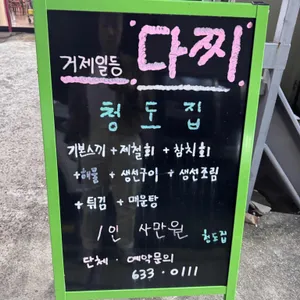 거제일등 다찌
청도집
기본스끼 + 제철회 + 참치회
+해물 + 생선구이 + 생선조림
+ 튀김 + 매운탕
1인 사만원 청도집
단체 · 예약문의
633 · 0111